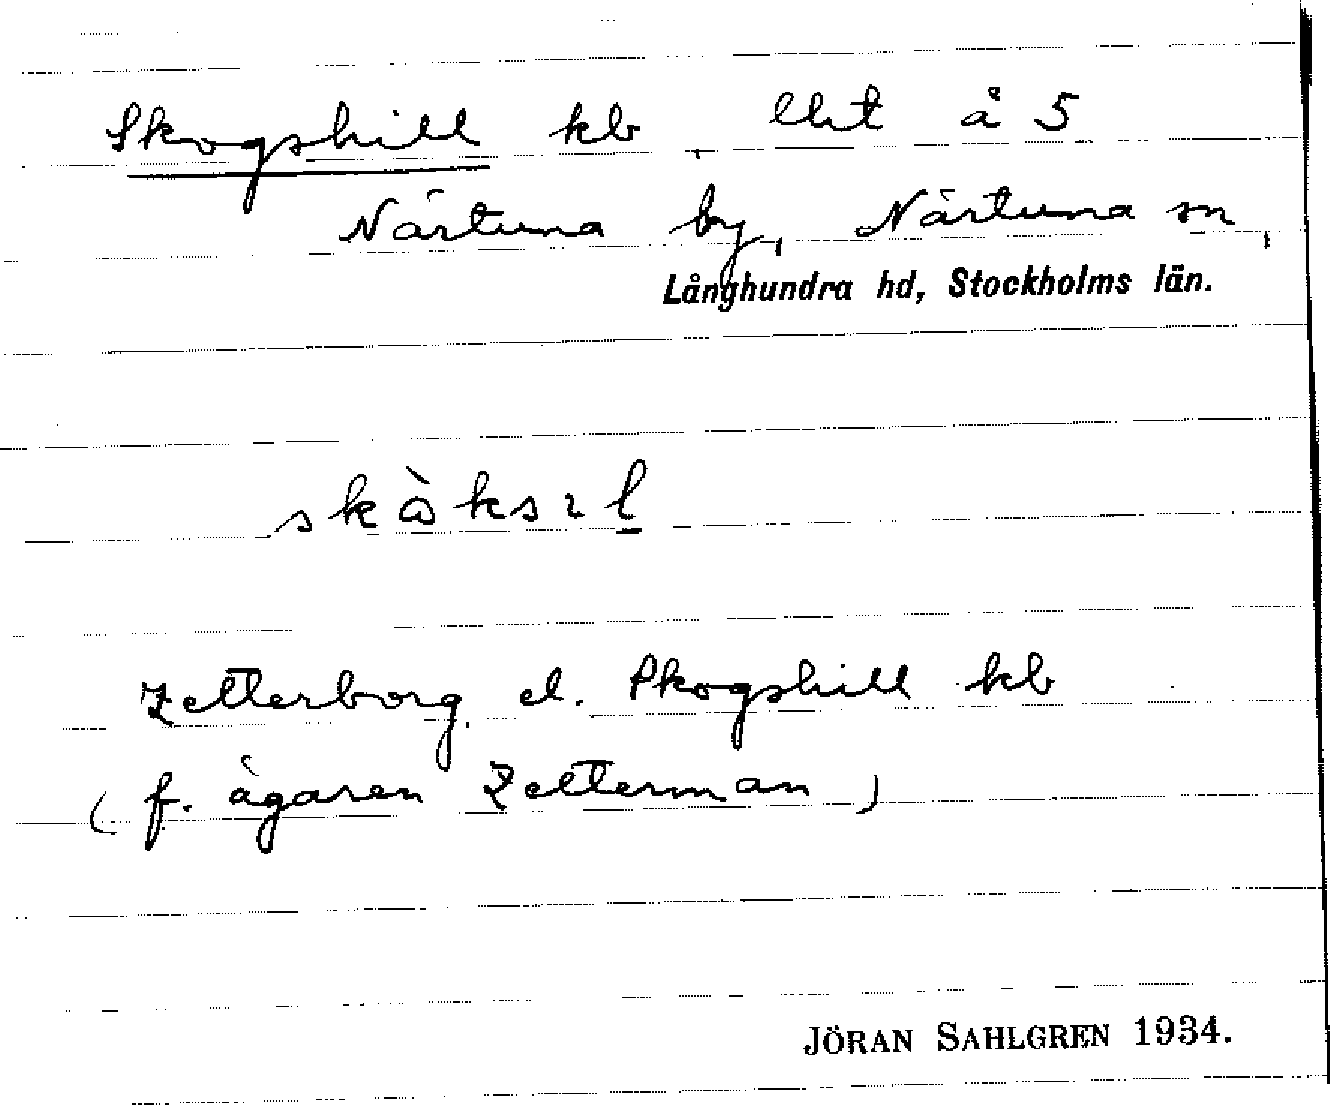 Skogshill kb, lht å 5
Närtuna by, Närtuna sn,
Långhundra hd, Stockholms län.
Zetterborg el. Skogshill kb
(f. ägaren Zetterman)
JÖRAN SAHLGREN 1934.